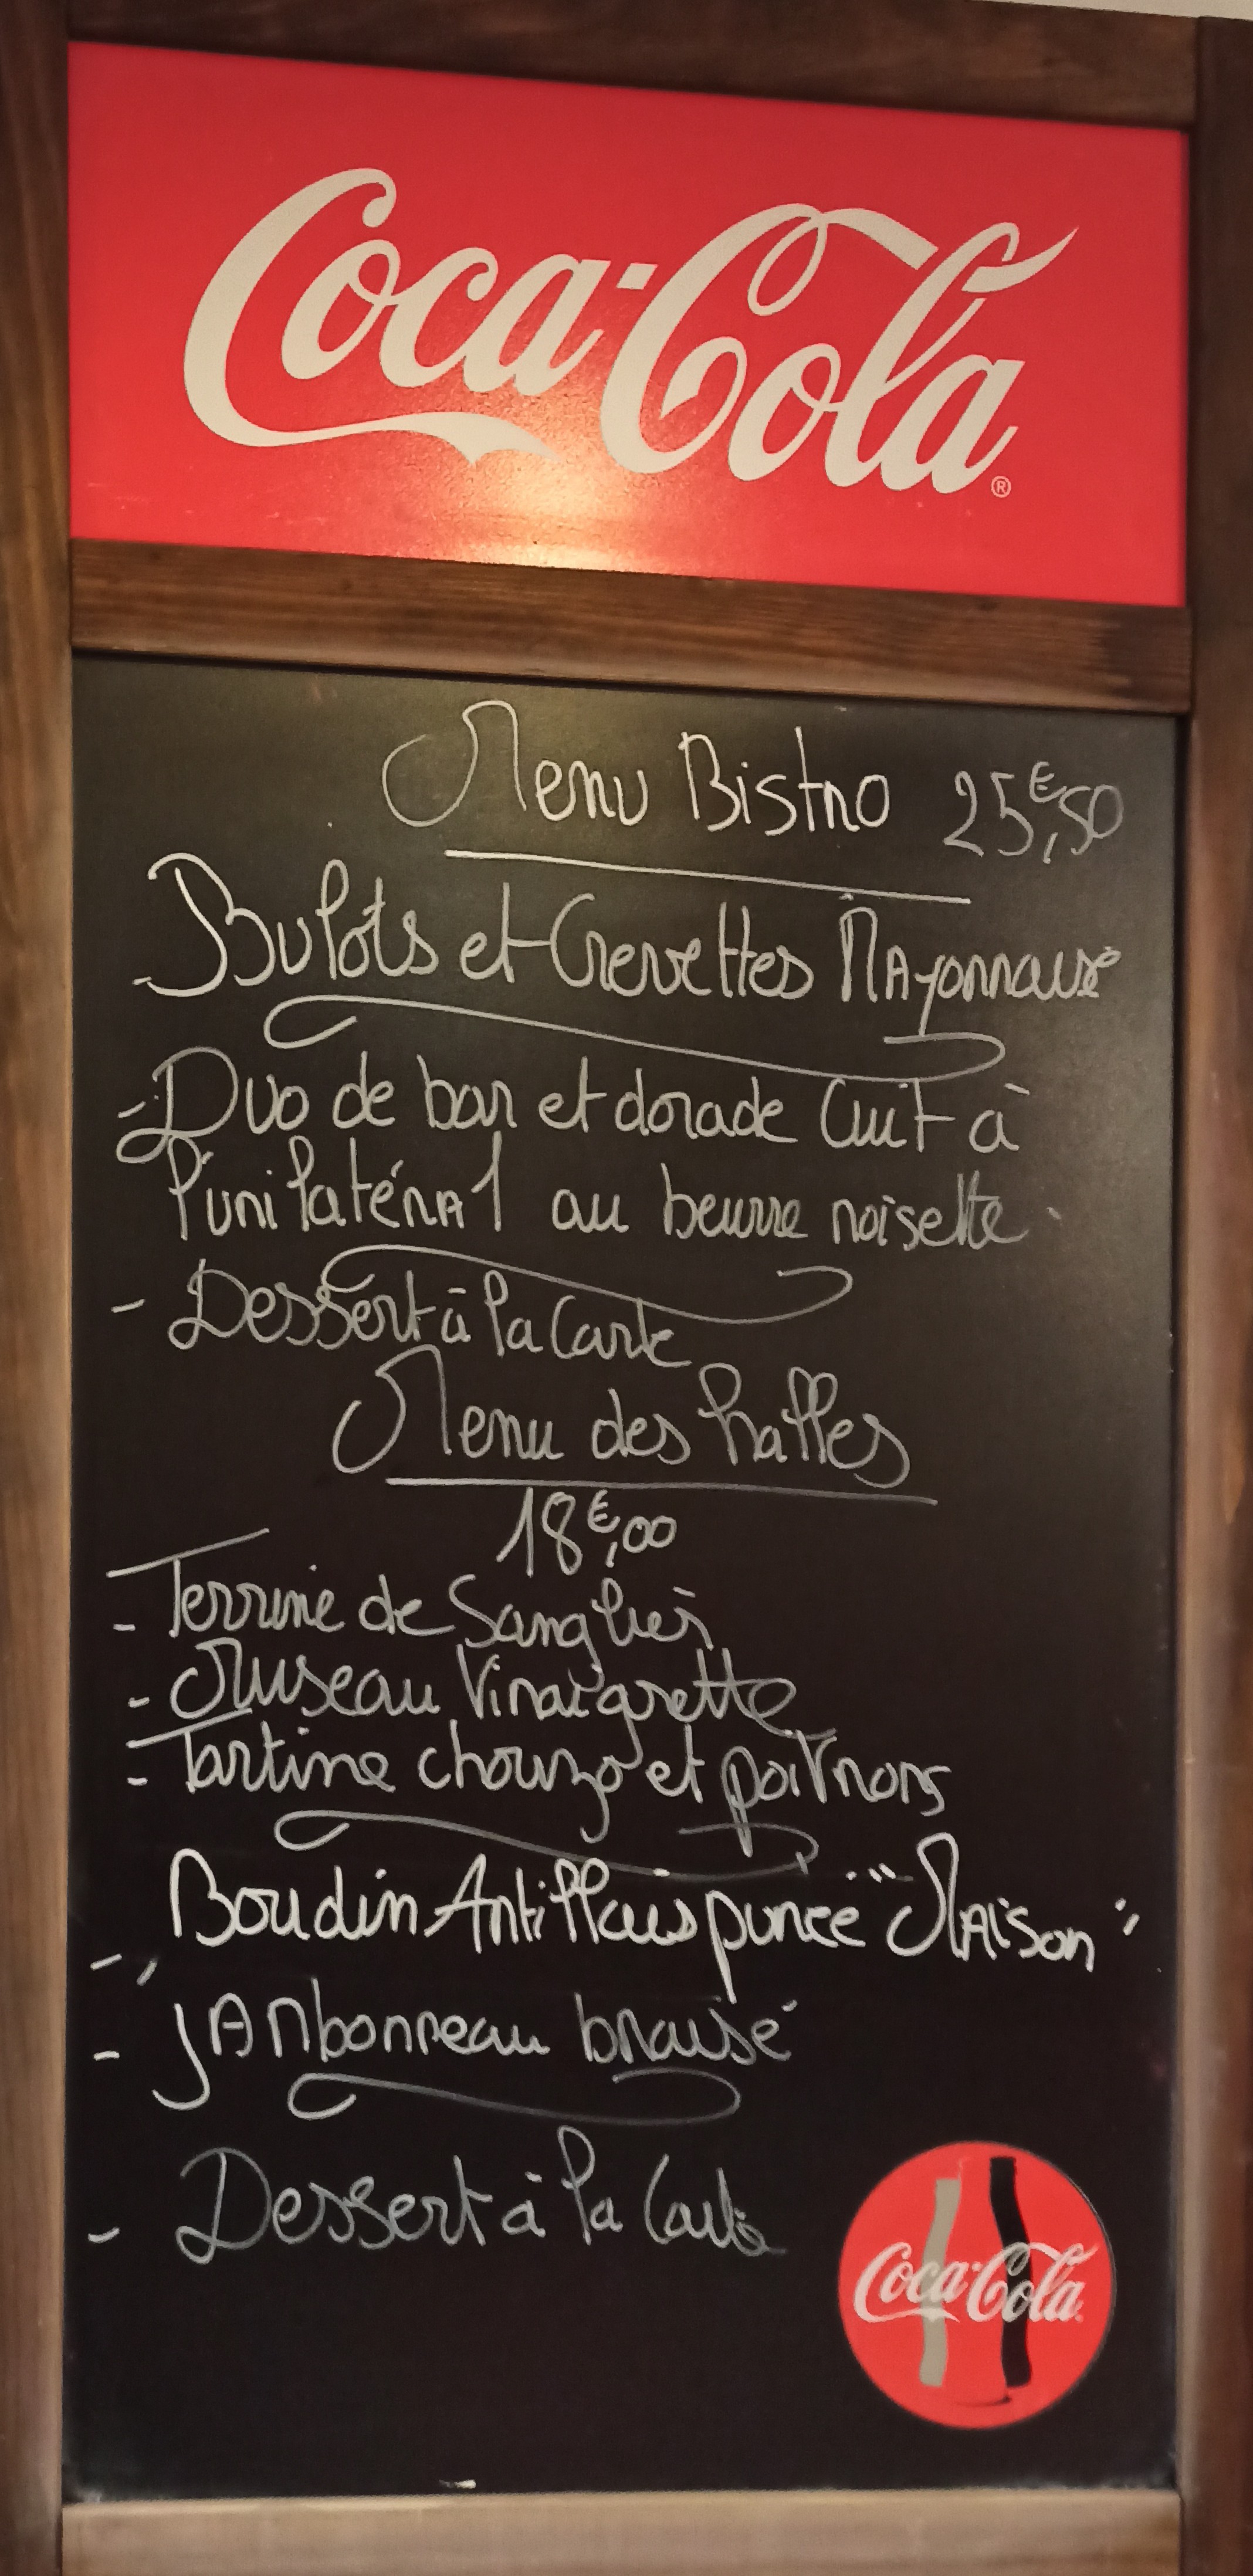 Coca-Cola®
Menu Bistro 25€,50
- Bulots et Crevettes Mayonnaise
- Duo de bar et dorade Cuit à
l'unilatéral au beurre noisette
- Dessert à la Carte
Menu des halles
18€,00
- Terrine de Sanglier
- Museau Vinaigrette
- Tartine chorizo et poivrons
- Boudin Antillais purée "Maison"
- jambonneau braisé
- Dessert à la Carte
Coca-Cola